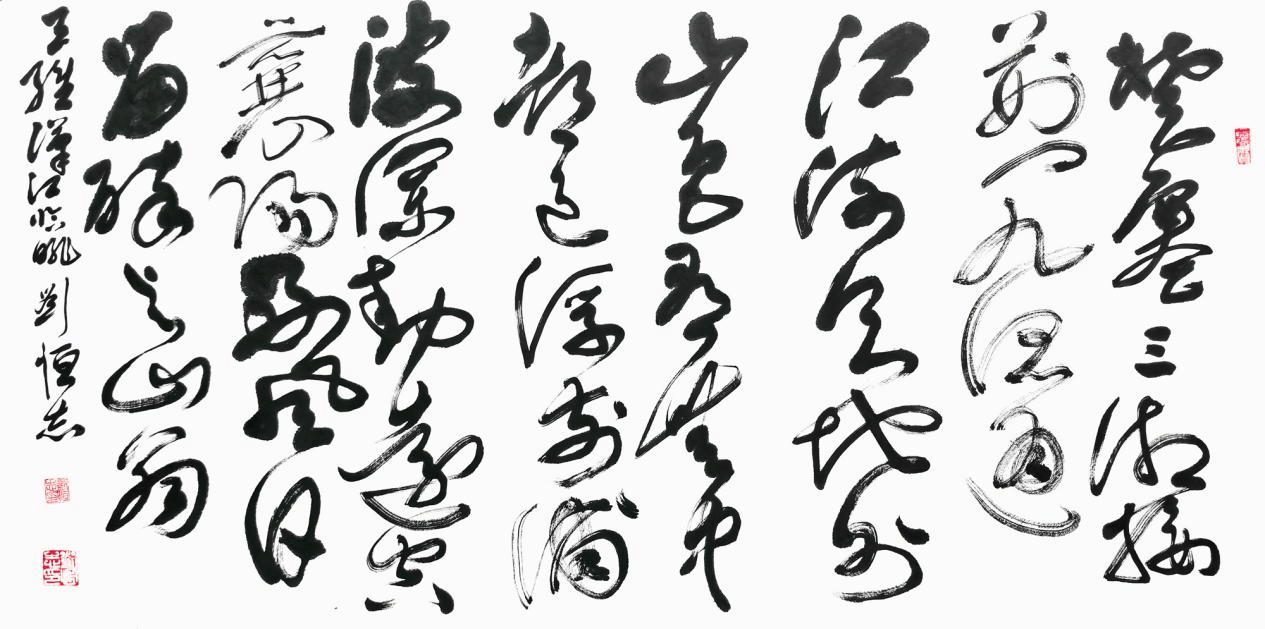 楚塞三湘接
荊門九派通
江流天地外
山色有無中
郡邑浮前浦
波瀾動遠空
襄陽好風日
留醉與山翁
王維漢江臨眺 劉恒志